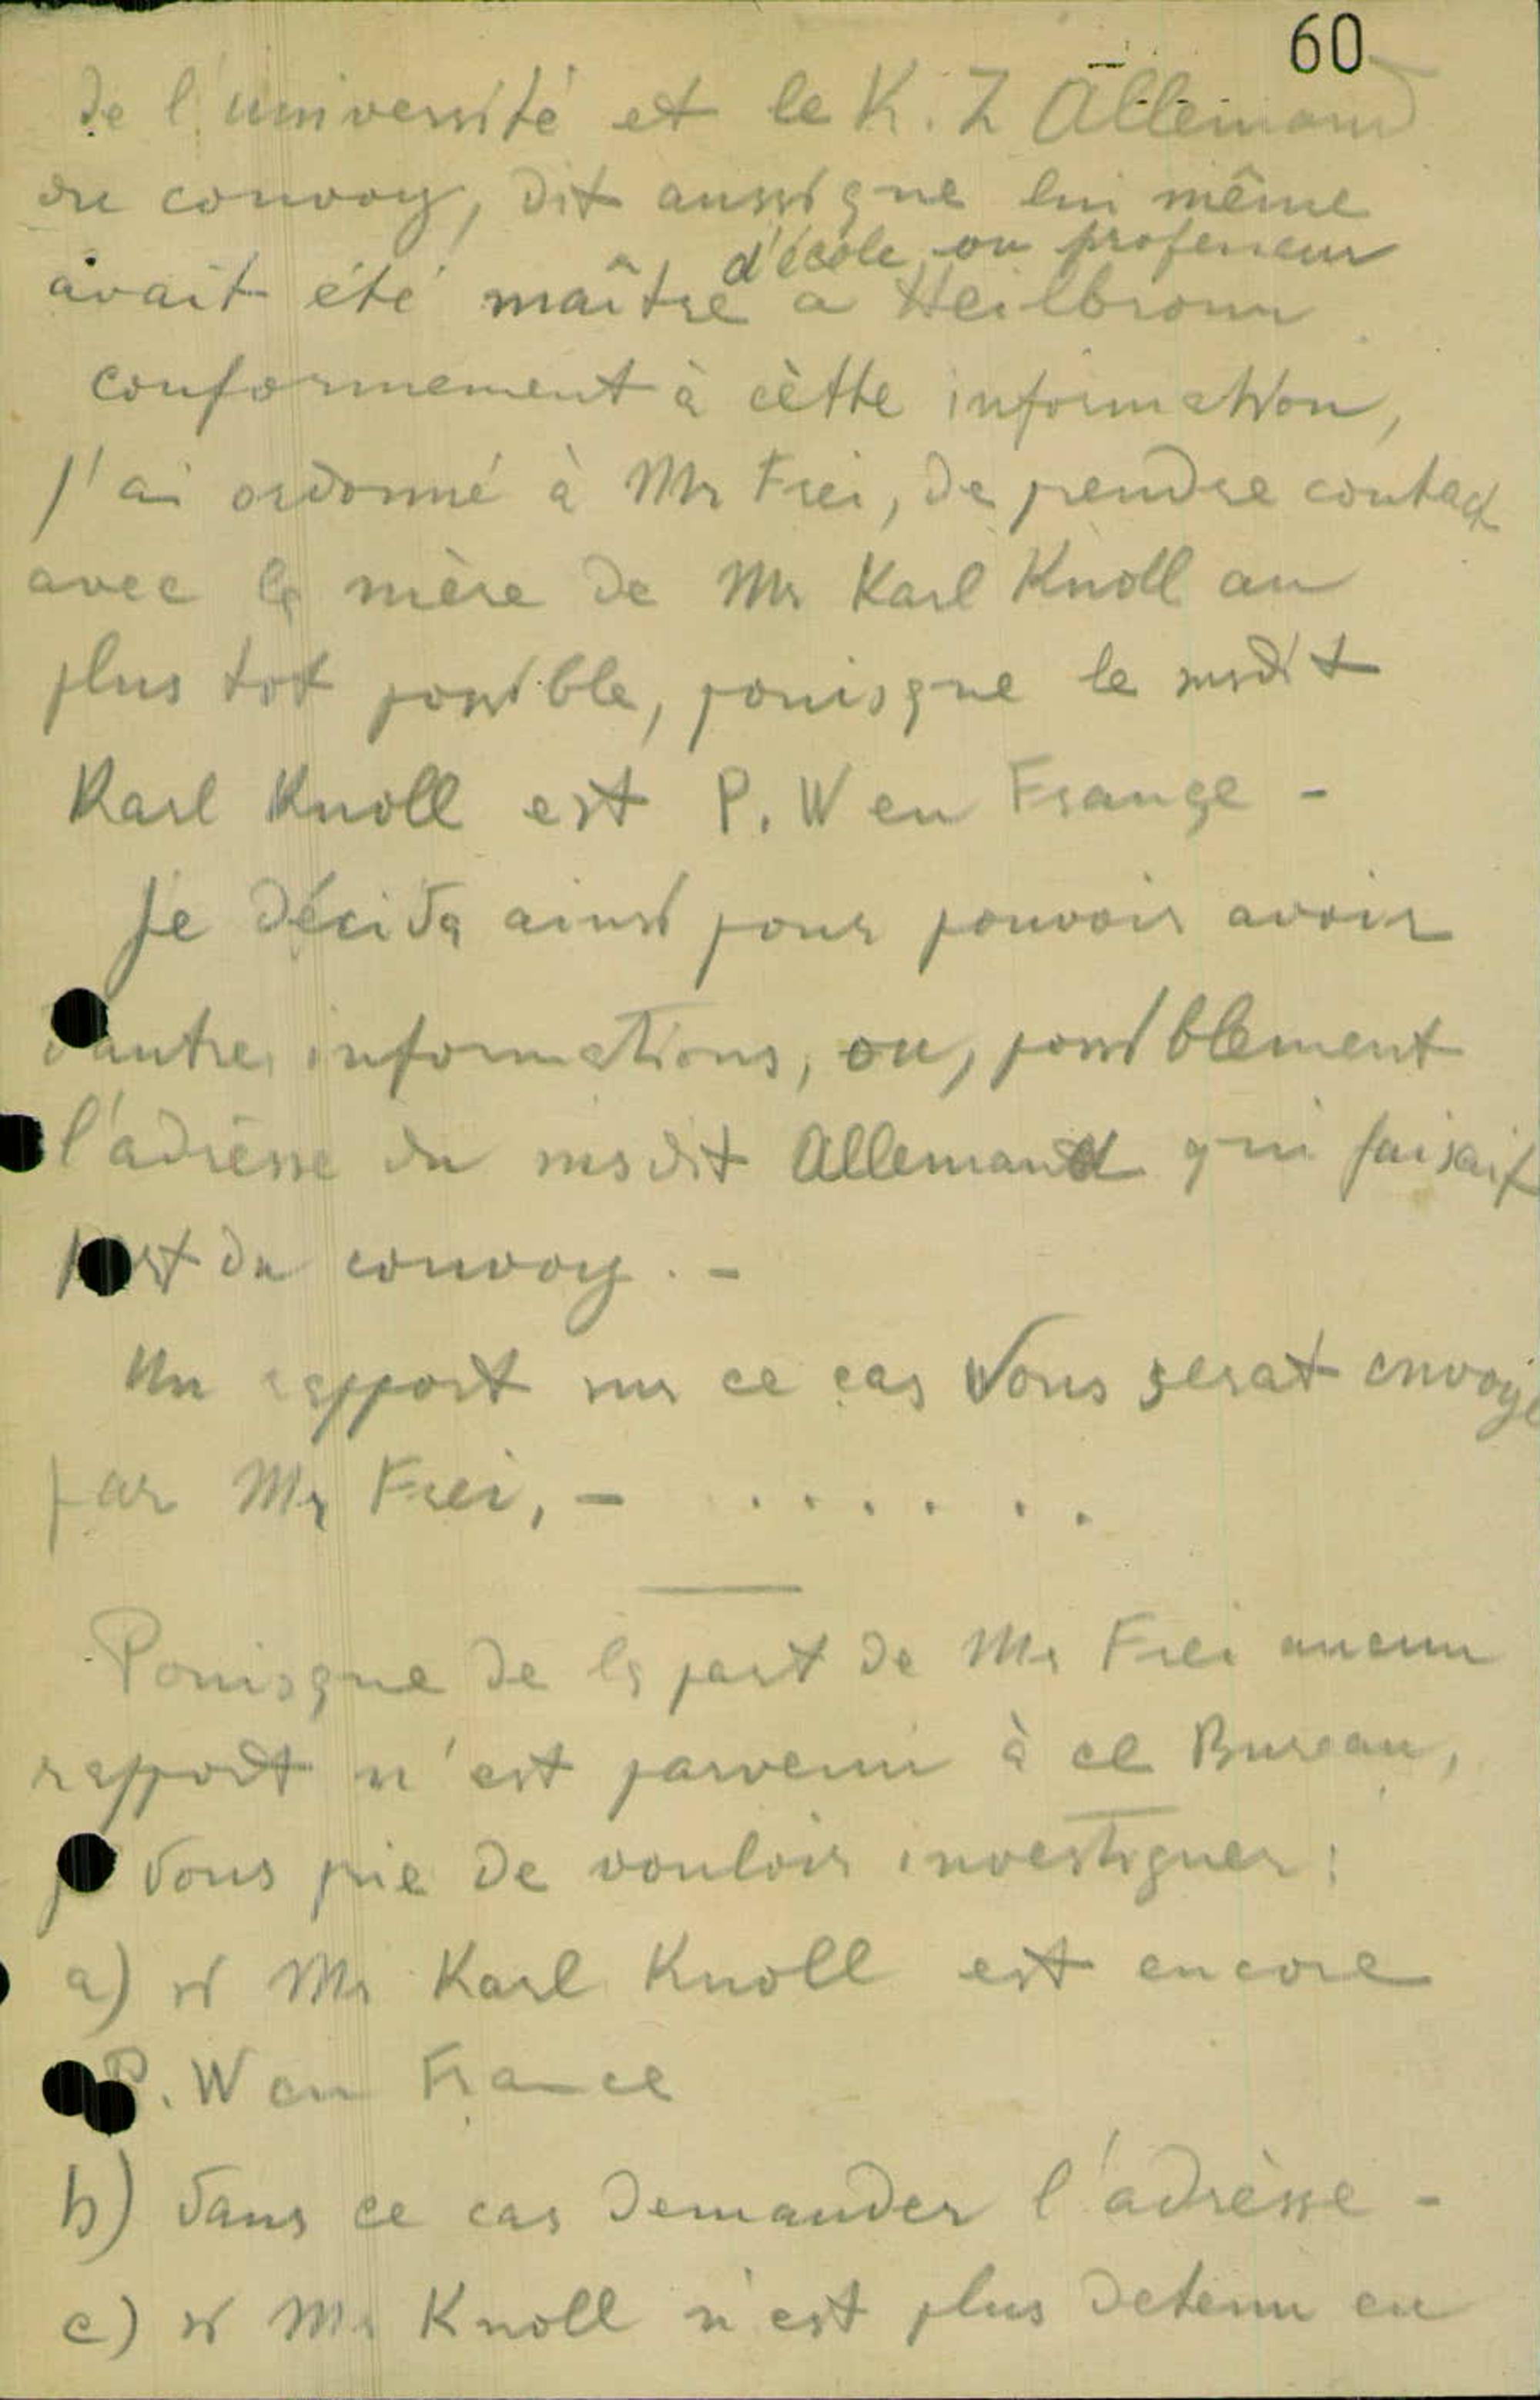 60
de l'université et le K. Z Allemand
du convoy, dit aussi que lui même
d'école ou professeur
avait été maître a Heilbronn
conformement à cètte information,
j'ai ordonné à Mr Frei, de prendre contact
avec la mère de Mr Karl Knoll au
plus tot possible, pouisque le susdit
Karl Knoll est P. W en Françe -
Je décida ainsi pour pouvoir avoir
d'autre informations, ou, possiblement
l'adrèsse du susdit Allemand qui faisait
part du convoy. -
Un rapport sur ce cas Vous serat envoyé
par Mr Frei, - . . . . . .
Pouisque de la part de Mr Frei aucun
rapport n'est parvenu à ce Bureau,
je Vous prie de vouloir investiguer:
a) si Mr Karl Knoll est encore
P. W en France
b) dans ce cas demander l'adrèsse -
c) si Mr Knoll n'est plus detenu en